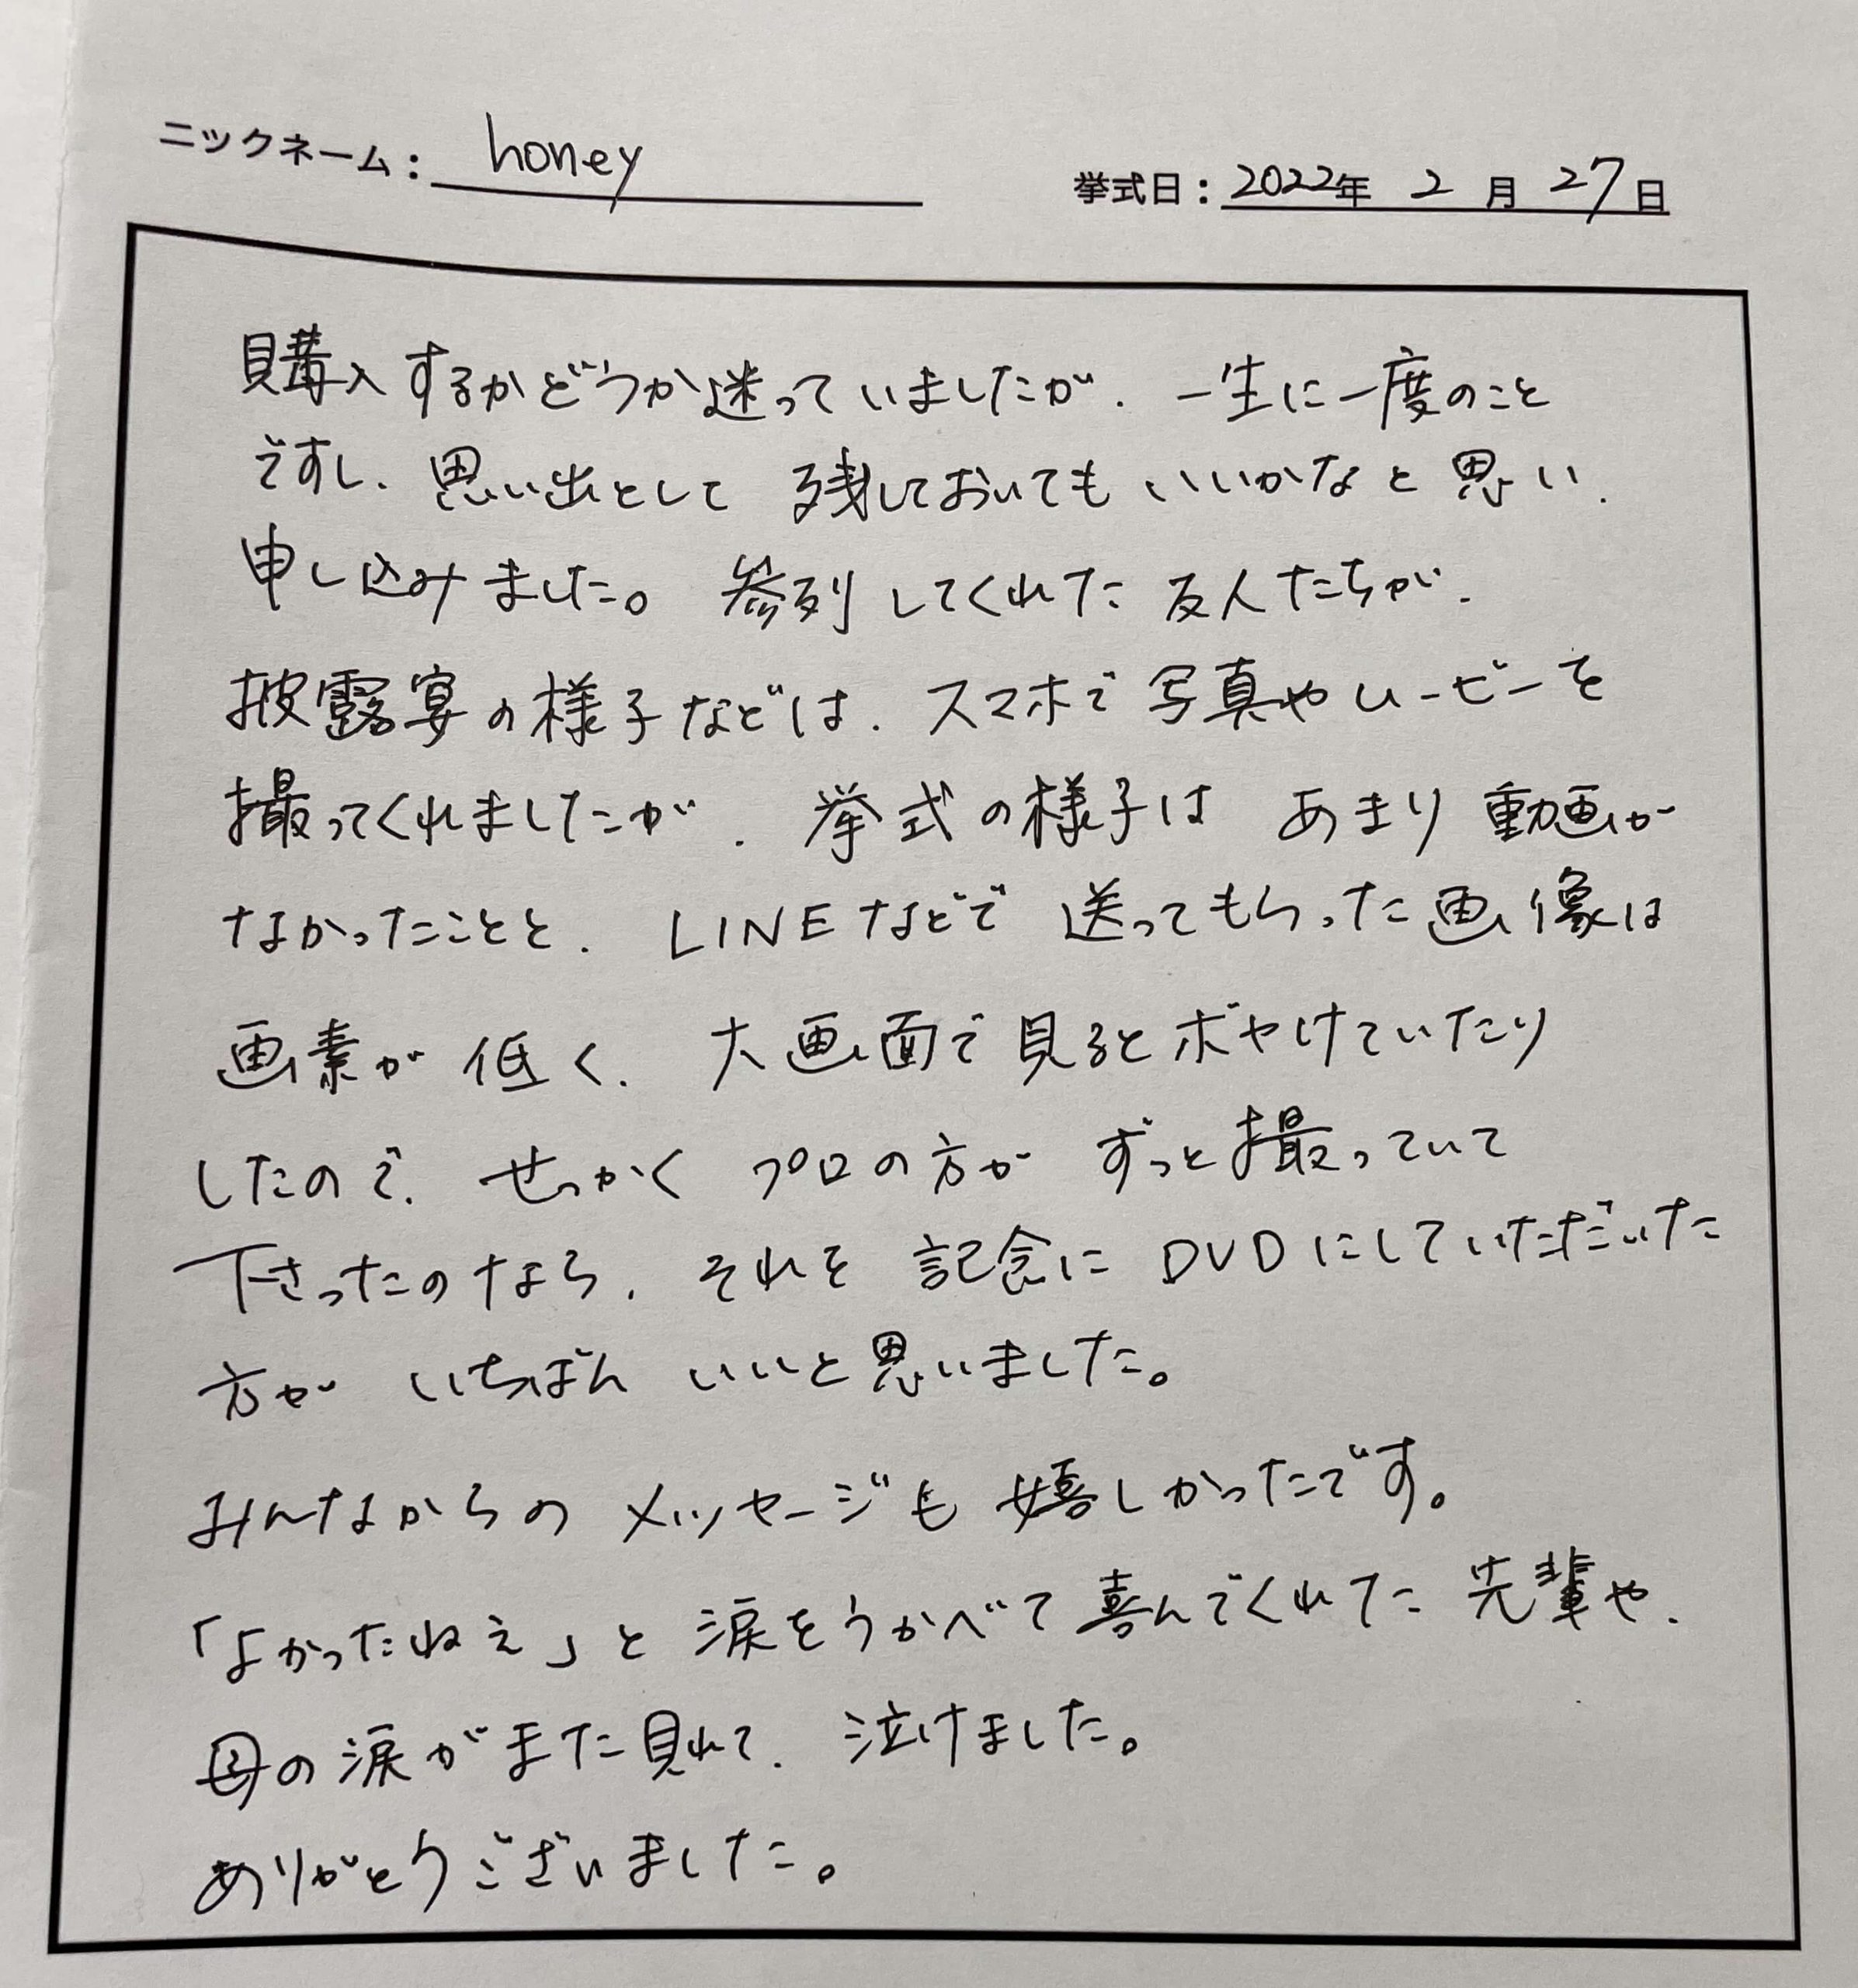 ニックネーム： honey
挙式日：2022年 2月 27日
購入するかどうか迷っていましたが、一生に一度のこと
ですし、思い出として残しておいてもいいかなと思い、
申し込みました。参列してくれた友人たちが、
披露宴の様子などは、スマホで写真やムービーを
撮ってくれましたが、挙式の様子はあまり動画が
なかったことと、LINEなどで送ってもらった画像は
画素が低く、大画面で見るとボヤけていたり
したので、せっかくプロの方がずっと撮っていて
下さったのなら、それを記念にDVDにしていただいた
方がいちばんいいと思いました。
みんなからのメッセージも嬉しかったです。
「よかったねえ」と涙をうかべて喜んでくれた先輩や、
母の涙がまた見れて、泣けました。
ありがとうございました。